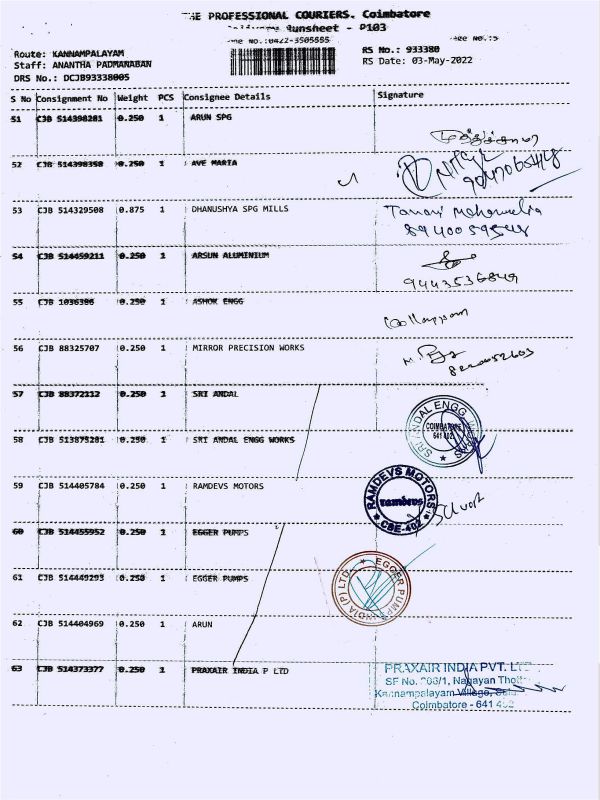 THE PROFESSIONAL COURIERS. Coimbatore
Runsheet - P103
No.:0422-3505555
Route: KANNAMPALAYAM
RS No.: 933380
Staff: ANANTHA PADMANABAN
RS Date: 03-May-2022
DRS No.: DCJB93338005
S No Consignment No Weight PCS Consignee Details Signature
51 CJB 514398281 0.250 1 ARUN SPG
52 CJB 514398358 0.250 1 AVE MARIA
53 CJB 514329508 0.875 1 DHANUSHYA SPG MILLS
54 CJB 514459211 0.250 1 ARSUN ALUMINIUM
9443536849
55 CJB 1036386 0.250 1 ASHOK ENGG
56 CJB 88325707 0.250 1 MIRROR PRECISION WORKS
57 CJB 88372112 0.250 1 SRI ANDAL
SRI ANDAL ENGG
COIMBATORE
641 402
58 CJB 513875281 0.250 1 SRI ANDAL ENGG WORKS
59 CJB 514405784 0.250 1 RAMDEVS MOTORS
RAMDEVS MOTORS
ramdevs
CBE-402
60 CJB 514455952 0.250 1 EGGER PUMPS
61 CJB 514449293 0.250 1 EGGER PUMPS
EGGER PUMPS INDIA (P) LTD
62 CJB 514404969 0.250 1 ARUN
63 CJB 514373377 0.250 1 PRAXAIR INDIA P LTD
PRAXAIR INDIA PVT. LTD
SF No. 206/1, Nagayan
Kannampalayam Village,
Coimbatore - 641 402